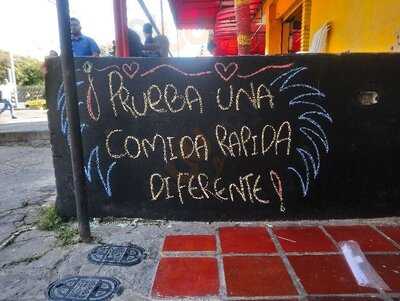 ¡PRUEBA UNA
COMIDA RAPIDA
DIFERENTE!